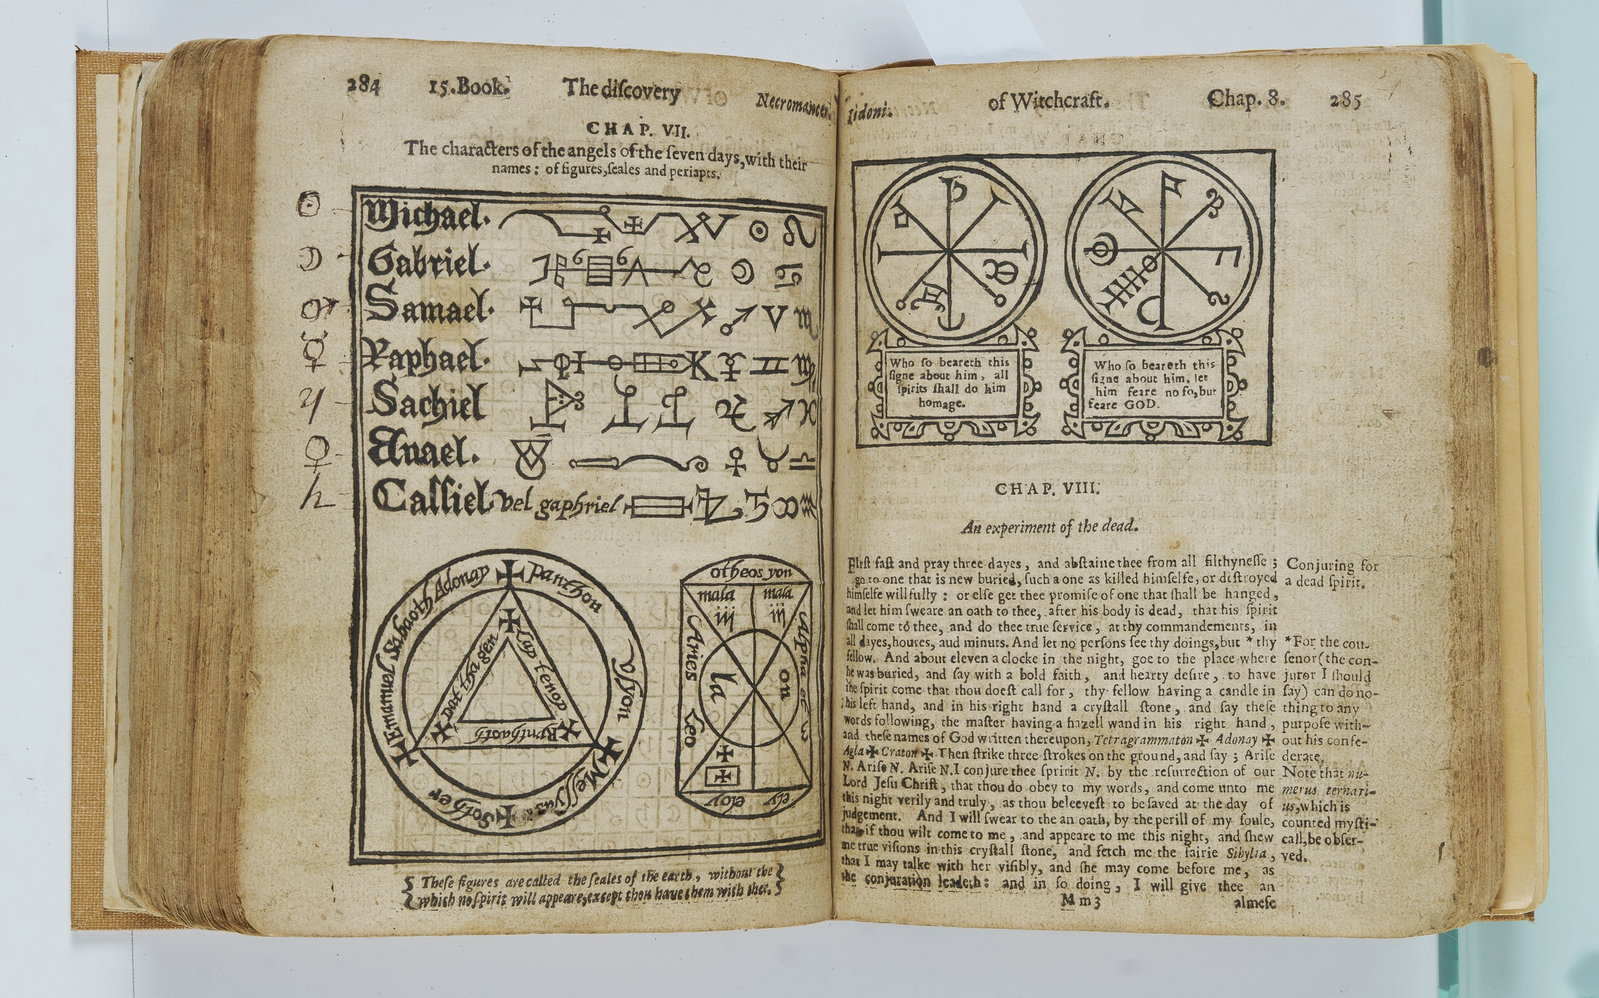 284 15.Book. The diſcovery Necromancer.
CHAP. VII.
The characters of the angels of the ſeven days, with their
names: of figures, ſeales and periapts.
Michael.
Gabriel.
Samael.
Raphael.
Sachiel
Anael.
Caſſiel vel gaphriel
Emanuel Sabaoth Adonay ✠ panthon
Vſyon ✠ Meſſyas ✠ Sother ✠
otheos yon
mala mala
iij iij
Aries Leo
la on
eloy ely
Theſe figures are called the ſeales of the earth, without the
which no ſpirit will appeare, except thou have them with thee.
Iidoni. of Witchcraft. Chap. 8. 285
Who ſo beareth this
ſigne about him, all
ſpirits ſhall do him
homage.
Who ſo beareth this
ſigne about him, let
him feare no fo, but
feare GOD.
CHAP. VIII.
An experiment of the dead.
FIrſt faſt and pray three dayes, and abſtaine thee from all filthyneſſe;
go to one that is new buried, ſuch a one as killed himſelfe, or deſtroyed
himſelfe willfully: or elſe get thee promiſe of one that ſhall be hanged,
and let him ſweare an oath to thee, after his body is dead, that his ſpirit
ſhall come to thee, and do thee true ſervice, at thy commandements, in
all dayes, houres, aud minuts. And let no perſons ſee thy doings, but * thy
fellow. And about eleven a clocke in the night, goe to the place where
he was buried, and ſay with a bold faith, and hearty deſire, to have
the ſpirit come that thou doeſt call for, thy fellow having a candle in
his left hand, and in his right hand a cryſtall ſtone, and ſay theſe
words following, the maſter having a hazell wand in his right hand,
and theſe names of God written thereupon, Tetragrammaton ✠ Adonay ✠
Agla ✠ Craton ✠. Then ſtrike three ſtrokes on the ground, and ſay; Ariſe
N. Ariſe N. Ariſe N. I conjure thee ſpririt N. by the reſurrection of our
Lord Jeſu Chriſt, that thou do obey to my words, and come unto me
this night verily and truly, as thou beleeveſt to be ſaved at the day of
judgement. And I will ſwear to the an oath, by the perill of my ſoule,
that if thou wilt come to me, and appeare to me this night, and ſhew
me true viſions in this cryſtall ſtone, and fetch me the fairie Sibylia,
that I may talke with her viſibly, and ſhe may come before me, as
the conjuration leadeth: and in ſo doing, I will give thee an
Mm3 almeſe
Conjuring for
a dead ſpirit.
*For the cou-
ſenor (the con-
juror I ſhould
ſay) can do no-
thing to any
purpoſe with-
out his confe-
derate.
Note that nu-
merus ternari-
us, which is
counted myſti-
call, be obſer-
ved.